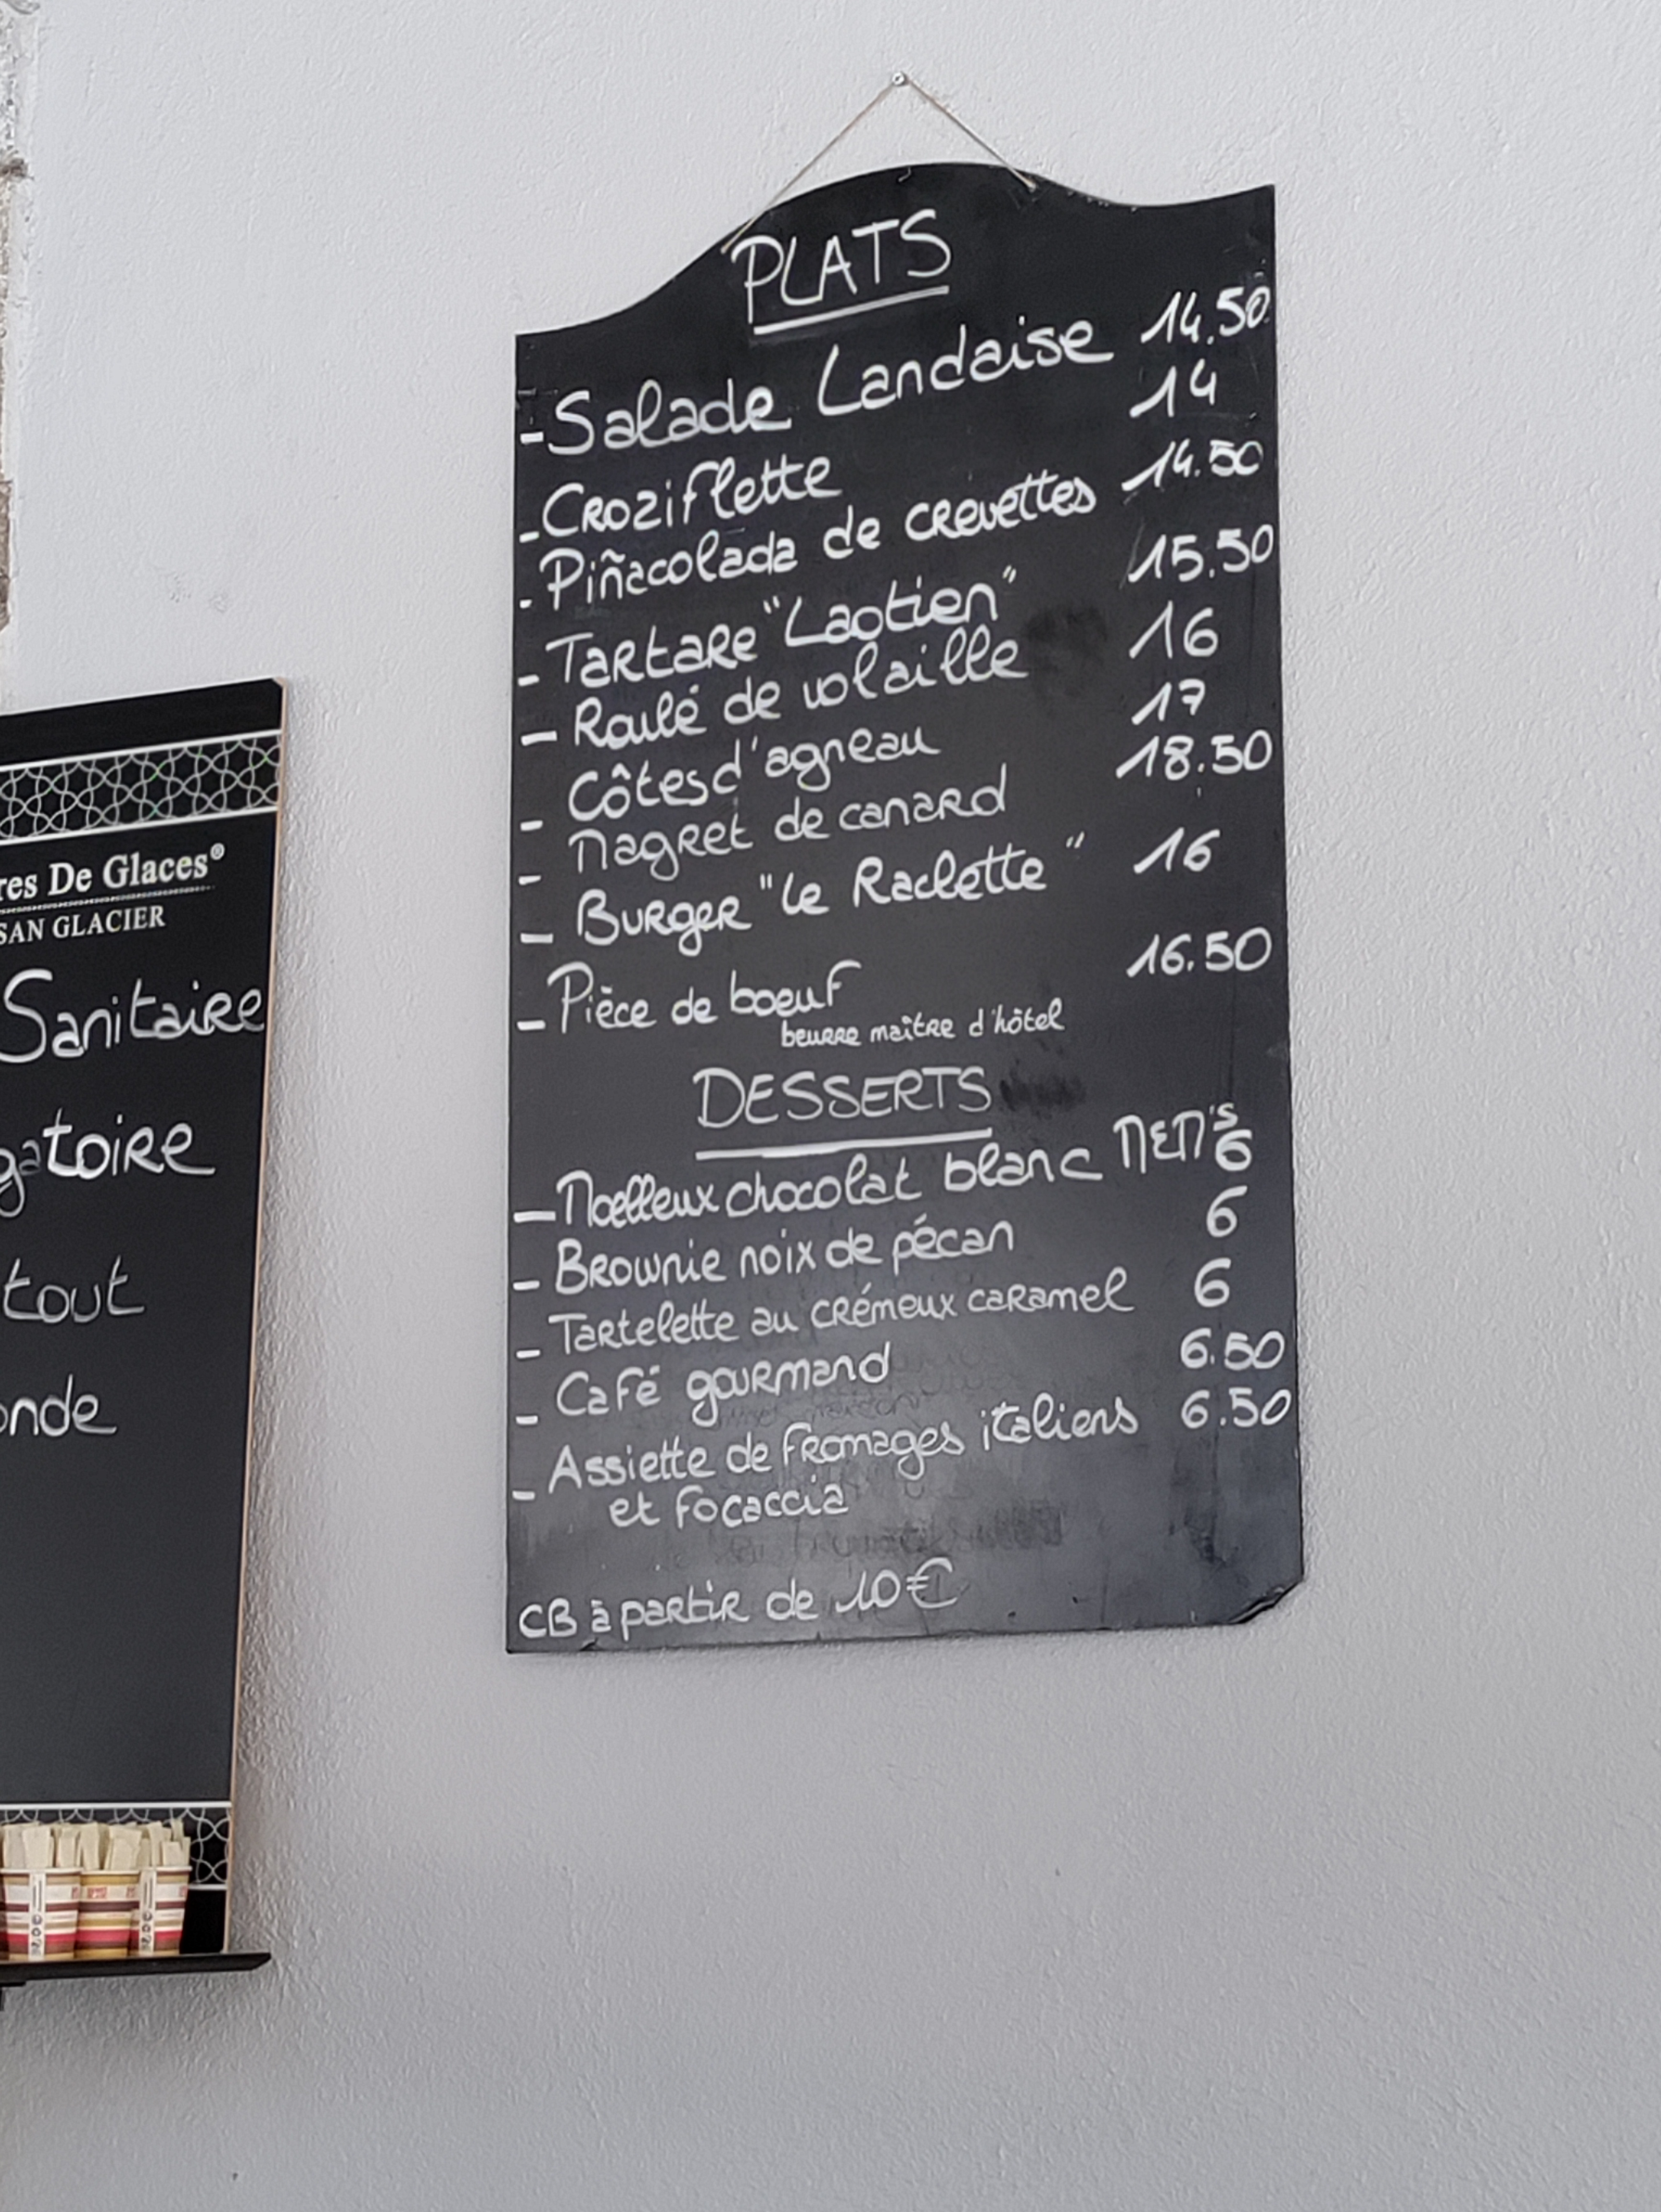 PLATS
- Salade Landaise 14.50
- Croziflette 14
- Piñacolada de crevettes 14.50
- Tartare "Laotien" 15.50
- Roulé de volaille 16
- Côtes d'agneau 17
- Magret de canard 18.50
- Burger "Le Raclette" 16
- Pièce de boeuf 16.50
beurre maître d'hôtel
DESSERTS
- Moelleux chocolat blanc M&M's 6
- Brownie noix de pécan 6
- Tartelette au crémeux caramel 6
- Café gourmand 6.50
- Assiette de fromages italiens 6.50
et focaccia
CB à partir de 10€
res De Glaces®
SAN GLACIER
Sanitaire
gatoire
tout
onde